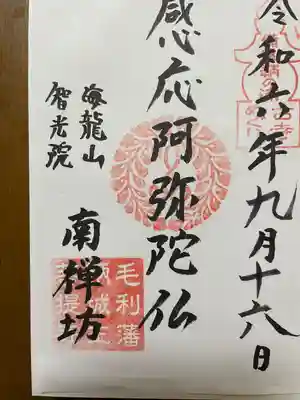 令和六年九月十六日
感応阿弥陀仏
海龍山
智光院
南禅坊
毛利藩
城主
菩提